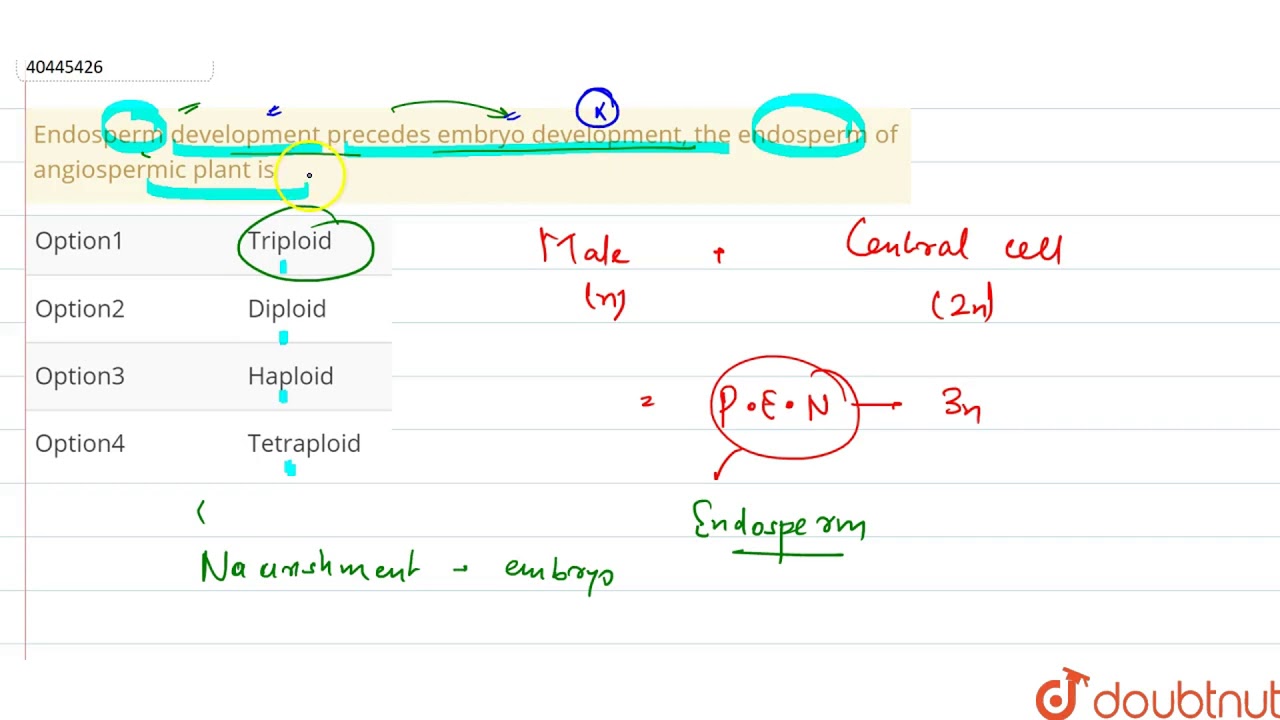 40445426
K
Endosperm development precedes embryo development, the endosperm of
angiospermic plant is
Option1 Triploid
Option2 Diploid
Option3 Haploid
Option4 Tetraploid
Male + Central cell
(n) (2n)
= P.E.N → 3n
Endosperm
(
Naurishment - embryo
doubtnut